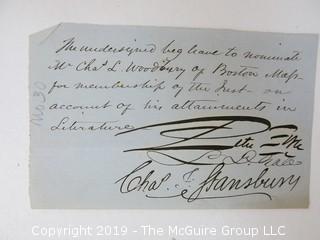 The undersigned beg leave to nominate
Mr Chas. L. Woodbury of Boston Mass
for membership of the Inst on
account of his attainments in
Literature
Peter
Chas. F. Stansbury
No. 30
Copyright 2019 - The McGuire Group